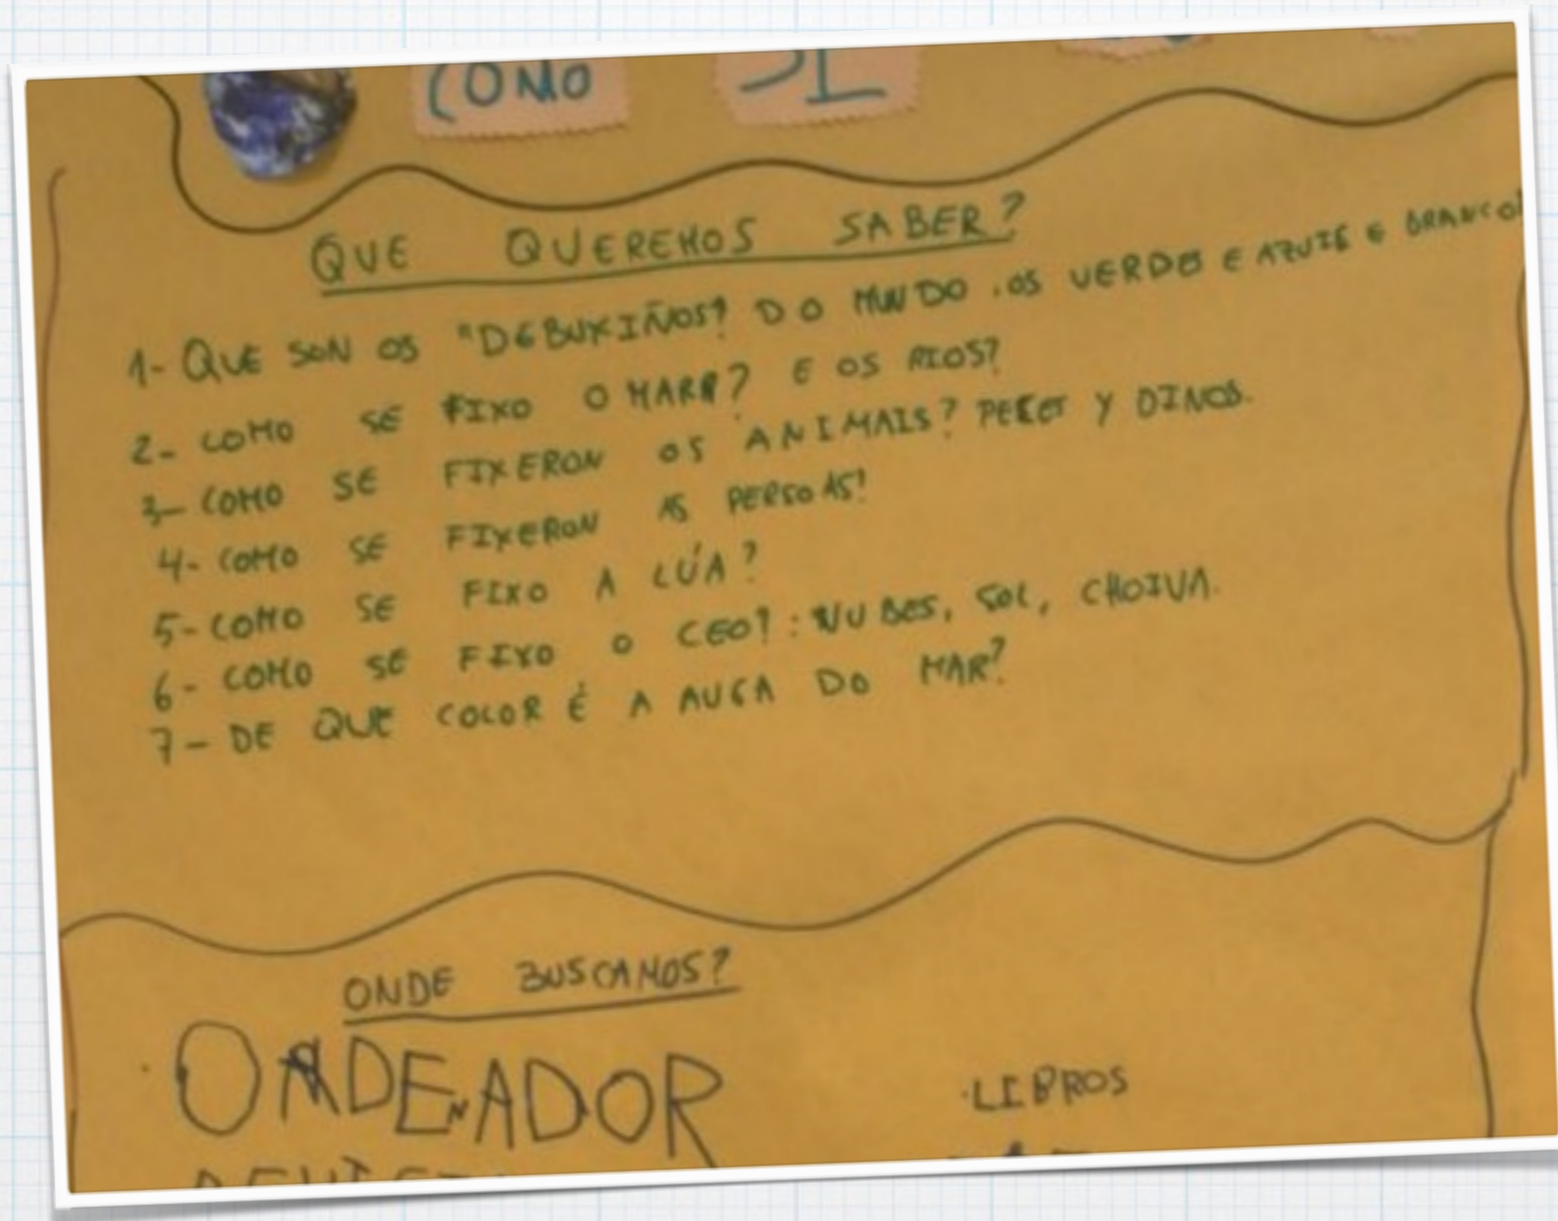 COMO
QUE QUEREMOS SABER?
1- QUE SON OS "DEBUXIÑOS? DO MUNDO. OS VERDES E AZUIS E BRANCOS
2- COMO SE FIXO O MARR? E OS RIOS?
3- COMO SE FIXERON OS ANIMAIS? PECES Y DINOS.
4- COMO SE FIXERON AS PERSOAS?
5- COMO SE FIXO A LÚA?
6- COMO SE FIXO O CEO?: NUBES, SOL, CHOIVA.
7- DE QUE COLOR É A AUGA DO MAR?
ONDE BUSCAMOS?
· ORDENADOR
· LIBROS